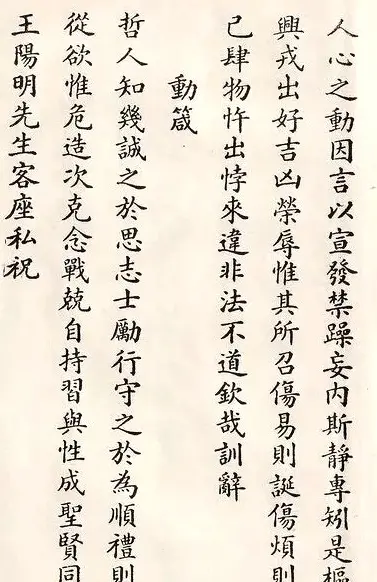 人心之動因言以宣發禁躁妄内斯靜專矧是樞
興戎出好吉凶榮辱惟其所召傷易則誕傷煩則
己肆物忤出悖來違非法不道欽哉訓辭
動箴
哲人知幾誠之於思志士勵行守之於為順禮則
從欲惟危造次克念戰兢自持習與性成聖賢同
王陽明先生客座私祝